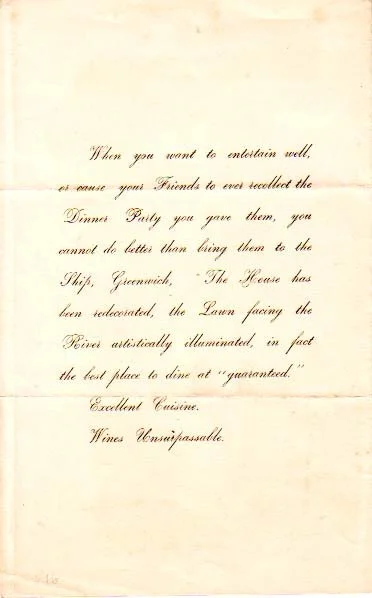 When you want to entertain well,
or cause your Friends to ever recollect the
Dinner Party you gave them, you
cannot do better than bring them to the
Ship, Greenwich, "The House has
been redecorated, the Lawn facing the
River artistically illuminated, in fact
the best place to dine at "guaranteed."
Excellent Cuisine.
Wines Unsurpassable.
16